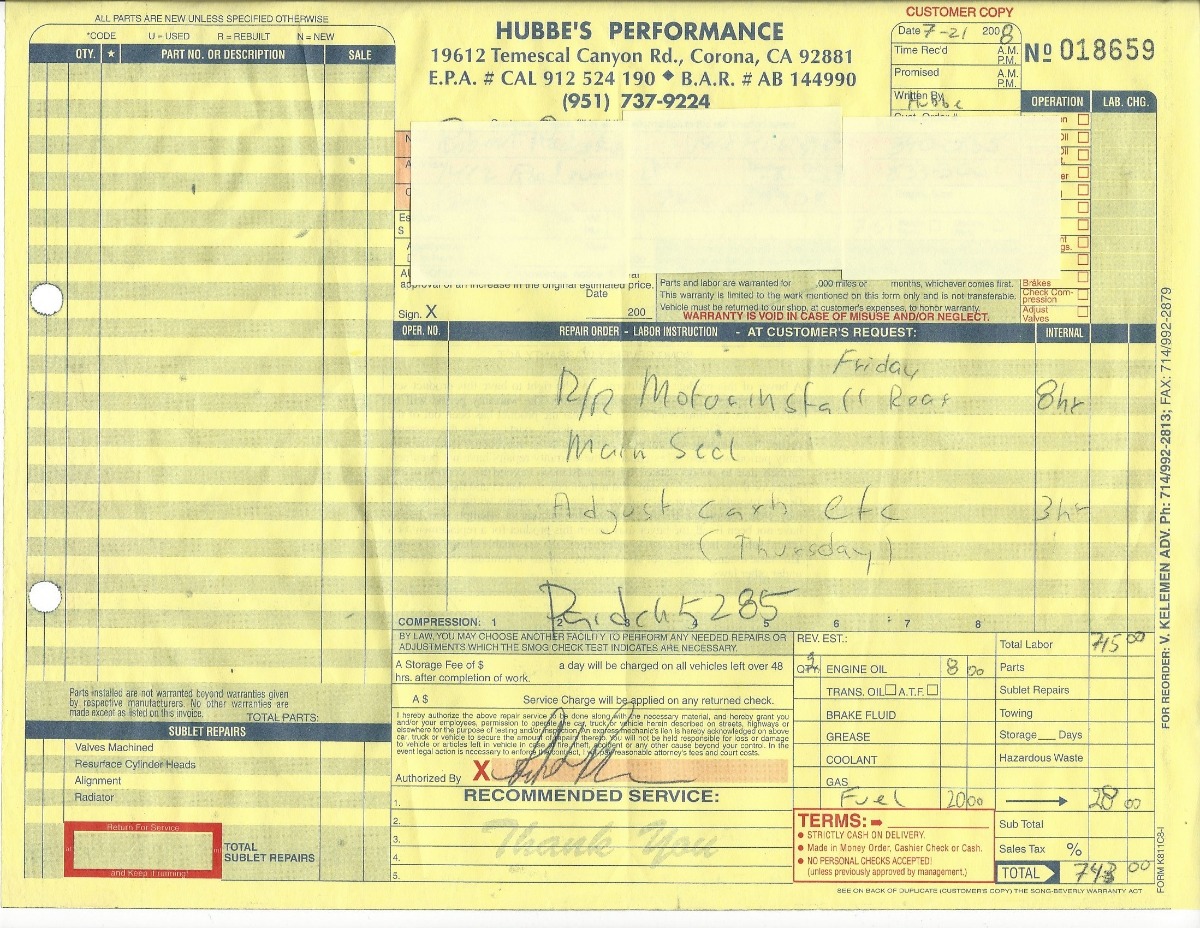 ALL PARTS ARE NEW UNLESS SPECIFIED OTHERWISE
*CODE U = USED R = REBUILT N = NEW
QTY. ★ PART NO. OR DESCRIPTION SALE
HUBBE'S PERFORMANCE
19612 Temescal Canyon Rd., Corona, CA 92881
E.P.A. # CAL 912 524 190 ◆ B.A.R. # AB 144990
(951) 737-9224
CUSTOMER COPY
Date 7-21 2008
Time Rec'd A.M. P.M.
Promised A.M. P.M.
Written By Hubbe
No 018659
OPERATION LAB. CHG.
approval of an increase in the original estimated price.
Date
Sign. X 200
Parts and labor are warranted for ,000 miles or months, whichever comes first.
This warranty is limited to the work mentioned on this form only and is not transferable.
Vehicle must be returned to our shop, at customer's expenses, to honor warranty.
WARRANTY IS VOID IN CASE OF MISUSE AND/OR NEGLECT.
Brakes
Check Com-
pression
Adjust
Valves
OPER. NO. REPAIR ORDER - LABOR INSTRUCTION - AT CUSTOMER'S REQUEST: INTERNAL
Friday
R/R Motor install Rear 8hr
Main Seal
Adjust carb etc 3hr
(Thursday)
5285
COMPRESSION: 1 2 3 4 5 6 7 8
BY LAW, YOU MAY CHOOSE ANOTHER FACILITY TO PERFORM ANY NEEDED REPAIRS OR
ADJUSTMENTS WHICH THE SMOG CHECK TEST INDICATES ARE NECESSARY.
A Storage Fee of $ a day will be charged on all vehicles left over 48
hrs. after completion of work.
A $ Service Charge will be applied on any returned check.
I hereby authorize the above repair service to be done along with the necessary material, and hereby grant you
and/or your employees, permission to operate the car, truck or vehicle herein described on streets, highways or
elsewhere for the purpose of testing and/or inspection an express mechanic's lien is hereby acknowledged on above
car, truck or vehicle to secure the amount of repairs thereto. You will not be held responsible for loss or damage
to vehicle or articles left in vehicle in case of fire, theft, accident or any other cause beyond your control. In the
event legal action is necessary to enforce this contract, I will pay reasonable attorney's fees and court costs.
Authorized By X
RECOMMENDED SERVICE:
1.
2.
3.
4.
5.
Thank You
REV. EST.:
ENGINE OIL 8 00
TRANS. OIL A.T.F.
BRAKE FLUID
GREASE
COOLANT
GAS
Fuel 20 00
Total Labor 715 00
Parts
Sublet Repairs
Towing
Storage Days
Hazardous Waste
28 00
Sub Total
Sales Tax %
TOTAL 743 00
TERMS:
• STRICTLY CASH ON DELIVERY.
• Made in Money Order, Cashier Check or Cash.
• NO PERSONAL CHECKS ACCEPTED!
(unless previously approved by management.)
SEE ON BACK OF DUPLICATE (CUSTOMER'S COPY) THE SONG-BEVERLY WARRANTY ACT
Parts installed are not warranted beyond warranties given
by respective manufacturers. No other warranties are
made except as listed on this invoice.
TOTAL PARTS:
SUBLET REPAIRS
Valves Machined
Resurface Cylinder Heads
Alignment
Radiator
Return For Service
and Keep it running!
TOTAL
SUBLET REPAIRS
FOR REORDER: V. KELEMEN ADV. Ph: 714/992-2813; FAX: 714/992-2879
FORM K811C8-I